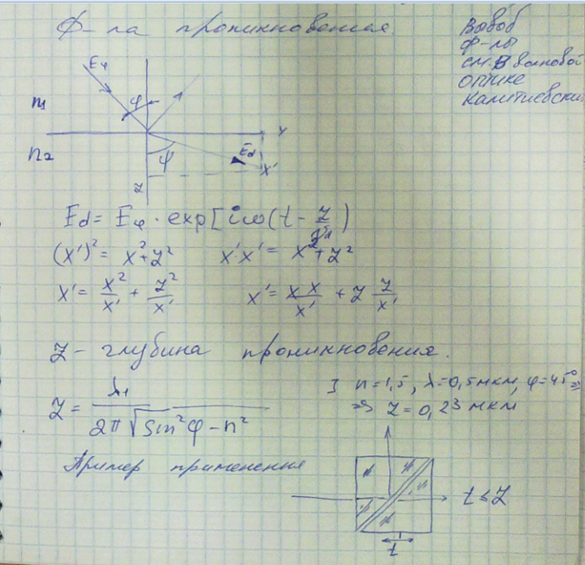 Ф-ла проникновения
Вывод
ф-лы
см. в волновой
оптике
Калитиевский
Eφ
φ
n₁
n₂
y
ψ
Ed
x'
z
Ed = Eφ · exp[iω(t - z/
(x')² = x² + z²
x'x' = x² + z²
x' = x²/x' + z²/x'
x' = x x/x' + z z/x'
z - глубина проникновения.
z = λ₁ / 2π√sin²φ - n²
n = 1,5, λ = 0,5 мкм, φ = 45° ⇒
⇒ z = 0,23 мкм
Пример применения
t ≤ z
t